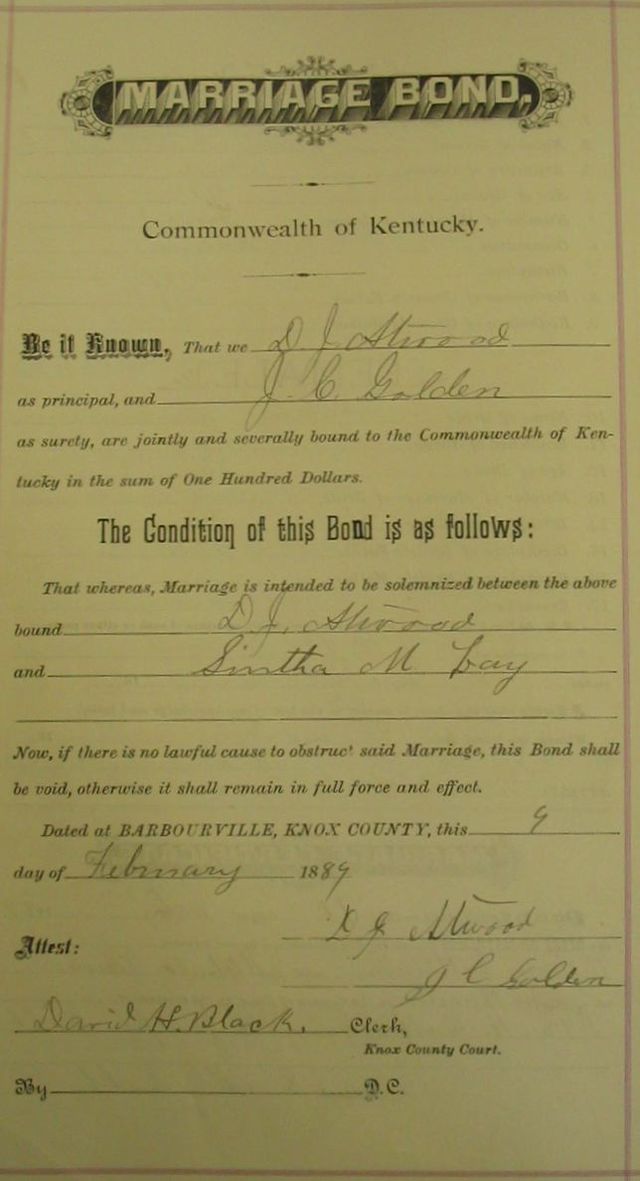 MARRIAGE BOND.
Commonwealth of Kentucky.
Be it Known, That we D J Atwood
as principal, and J. C. Golden
as surety, are jointly and severally bound to the Commonwealth of Ken-
tucky in the sum of One Hundred Dollars.
The Condition of this Bond is as follows:
That whereas, Marriage is intended to be solemnized between the above
bound D. J. Atwood
and Sintha M
Now, if there is no lawful cause to obstruct said Marriage, this Bond shall
be void, otherwise it shall remain in full force and effect.
Dated at BARBOURVILLE, KNOX COUNTY, this 9
day of February 1889
D J Atwood
Attest:
J C Golden
David H. Black. Clerk,
Knox County Court.
By D.C.